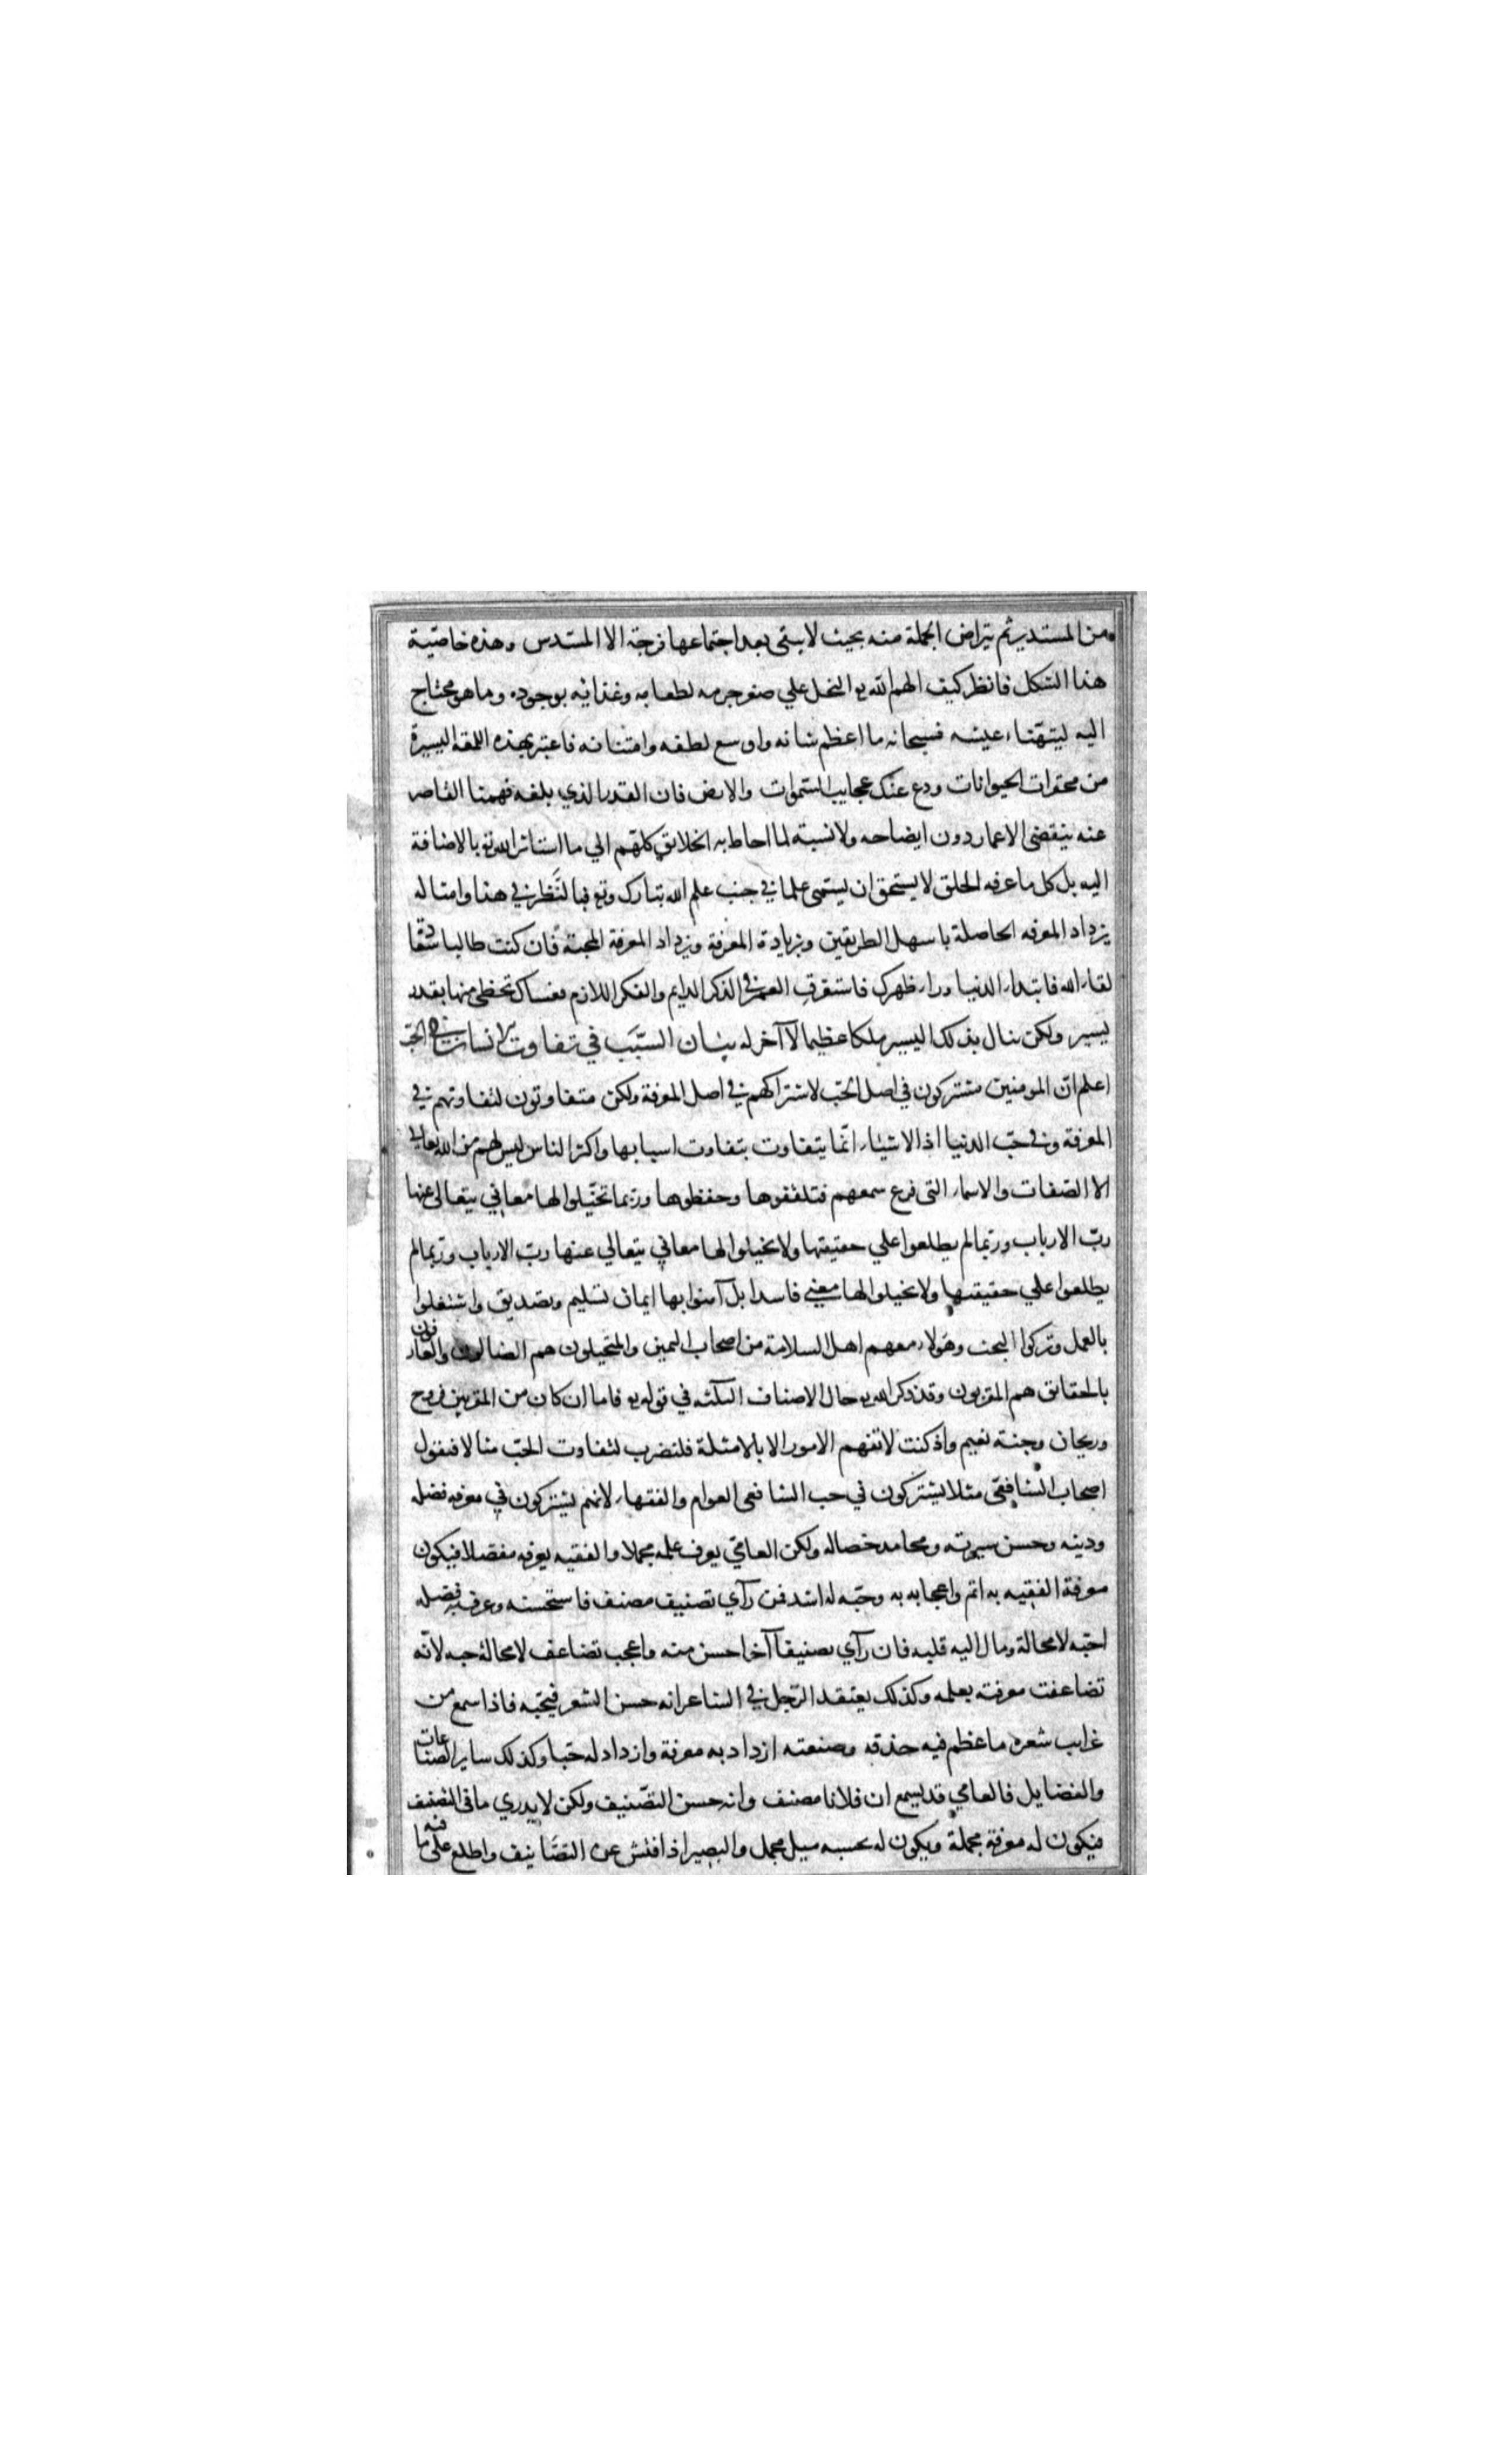 من المستدير ثم يتراص الجملة منه بحيث لا يبقى بعد اجتماعها فرجة الا المسدس وهذه خاصية
هذا الشكل فانظر كيف الهم الله تع النحل علي صغر جرمه لطعامه وغذائه بوجوده وما هو محتاج
اليه ليتهناء عيشه فسبحانه ما اعظم شانه واوسع لطفه وامتنانه فاعتبر بهذه اللمعة اليسيرة
من محقرات الحيوانات ودع عنك عجايب السموات والارض فان القدر الذي بلغه فهمنا القاصر
عنه ينقضى الاعمار دون ايضاحه ولا نسبة لما احاط به الخلايق كلهم الي ما استاثر الله تع بالاضافة
اليه بل كل ما عرفه الخلق لا يستحق ان يسمى علما في جنب علم الله تبارك وتع فبالنظر في هذا وامثاله
يزداد المعرفه الحاصلة باسهل الطريقين وبزيادة المعرفة ويزداد المعرفة المحبة فان كنت طالبا
لقاء الله فانبذ الدنيا وراء ظهرك فاستغرق العمر في الذكر الدايم والفكر اللازم فعساك تحظى منها بقدر
يسير ولكن تنال بذلك اليسير ملكا عظيما لا آخر له بيان السبب في تفاوت الناس في الحب
اعلم ان المومنين مشتركون في اصل الحب لاشتراكهم في اصل المعرفة ولكن متفاوتون لتفاوتهم في
المعرفة وفي حب الدنيا اذ الاشياء انما يتفاوت بتفاوت اسبابها واكثر الناس ليس لهم من الله تعالى
الا الصفات والاسماء التى قرع سمعهم فتلقفوها وحفظوها وربما تخيلوا لها معاني يتعالى عنها
رب الارباب وربما لم يطلعوا علي حقيقتها ولا تخيلوا لها معاني يتعالي عنها رب الارباب وربما لم
يطلعوا علي حقيقتها ولا تخيلوا لها معني فاسدا بل آمنوا بها ايمان تسليم وتصديق واشتغلوا
بالعمل وتركوا البحث وهولاء معهم اهل السلامة من اصحاب اليمين والمتخيلون هم الضالون والعارفون
بالحقايق هم المقربون وقد ذكر الله تع حال الاصناف الثلثه في قوله تع فاما ان كان من المقربين فروح
وريحان وجنة نعيم واذ كنت لا تفهم الامور الا بالامثلة فلنضرب لتفاوت الحب مثالا فنقول
اصحاب الشافعى مثلا يشتركون في حب الشافعى العوام والفقهاء لانهم يشتركون في معرفه فضله
ودينه وحسن سيرته ومحامد خصاله ولكن العامي يعرف علمه مجملا والفقيه يعرفه مفصلا فيكون
معرفة الفقيه به اتم واعجابه به وحبه له اشد فمن رآي تصنيف مصنف فاستحسنه وعرف به فضله
احبه لا محالة ومال اليه قلبه فان رآي تصنيفا آخر احسن منه واعجب تضاعف لا محالة حبه لانه
تضاعفت معرفته بعلمه وكذلك يعتقد الرجل في الشاعر انه حسن الشعر فيحبه فاذا سمع من
غرايب شعره ما عظم فيه حذقه وصنعته ازداد به معرفة وازداد له حبا وكذلك ساير الصناعات
والفضايل فالعامي قد يسمع ان فلانا مصنف وانه حسن التصنيف ولكن لا يدري ما في التصنيف
فيكون له معرفة مجملة ويكون له بحسبه ميل مجمل والبصير اذا فتش عن التصانيف واطلع على ما فيه